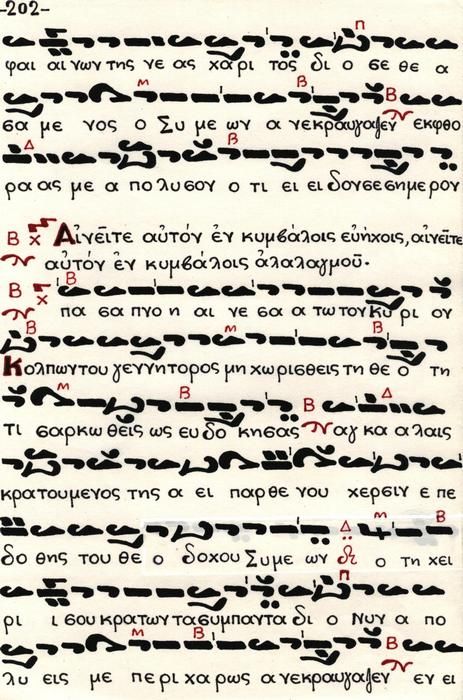 -202-
φαι αι γων της γε ας χα ρι τος δι ο σε θε α
σα με νος ο Συ με ων α νεκραυγαζεν εκφθο
ρα ας με α πο λυσον ο τι ει ει δονσεσημερον
Αἰνεῖτε αὐτόν ἐν κυμβάλοις εὐήχοις, αἰνεῖτε
αὐτόν ἐν κυμβάλοις ἀλαλαγμοῦ.
πα σα πνο η αι νε σα α τωτον Κυ ρι ον
Κολπωντου γεννητορος μη χωρισθεις τη θε ο τη
τι σαρκω θεις ως ευ δο κησας αγ κα α λαις
κρατουμενος της α ει παρθε νου χερσιν ε πε
δο θης του θε ο δοχου Συμε ων ο τη χει
ρι ι σου κρατων τασυμπαντα δι ο Νυν α πο
λυ εις με πε ρι χα ρως α νεκραυγαζεν εν ει